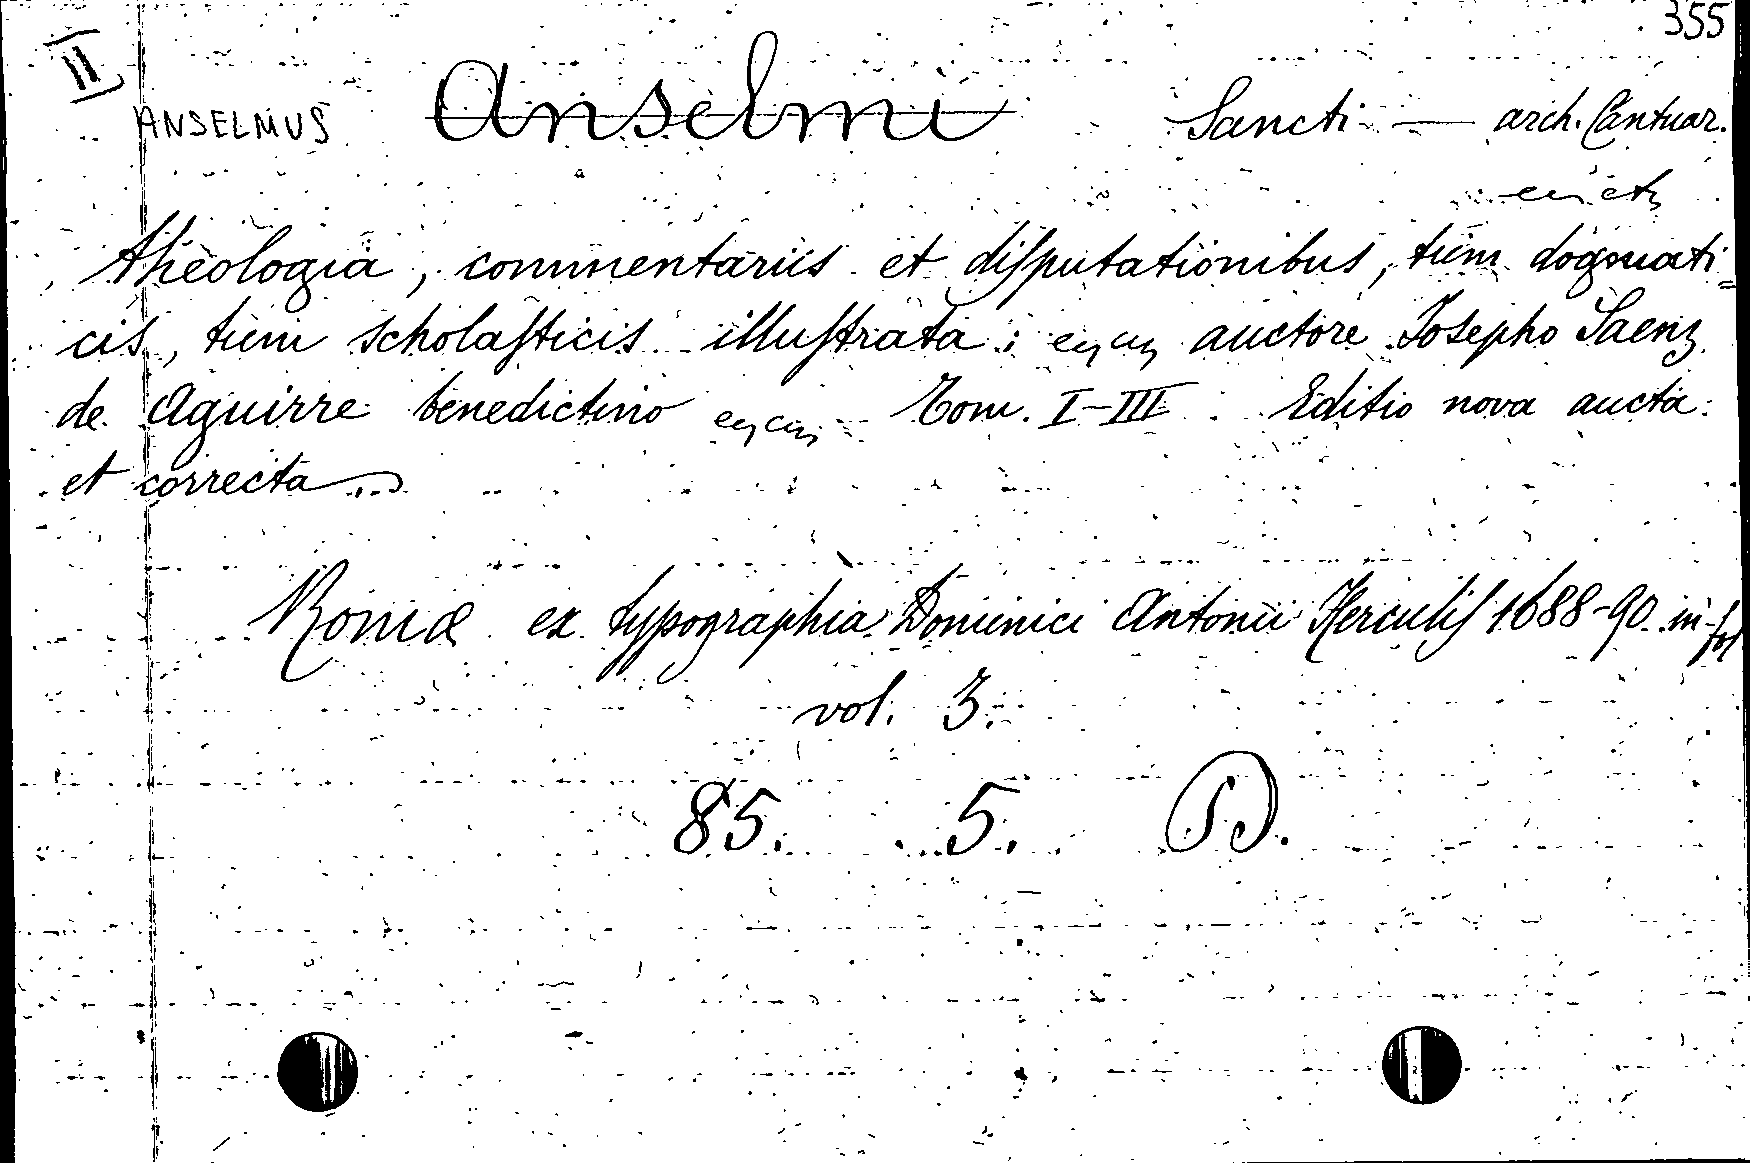 355
II
ANSELMUS Anselmi Sancti — arch. Cantuar.
theologia, commentariis et disputationibus, tum dogmati=
cis, tum scholasticis illustrata; auctore Josepho Saenz
de Aguirre benedictino Tom. I-III. Editio nova aucta
et correcta ...
Romæ ex typographia Dominici Antonii Herculis 1688-90. in-fol
vol. 3.
85. 5. D.